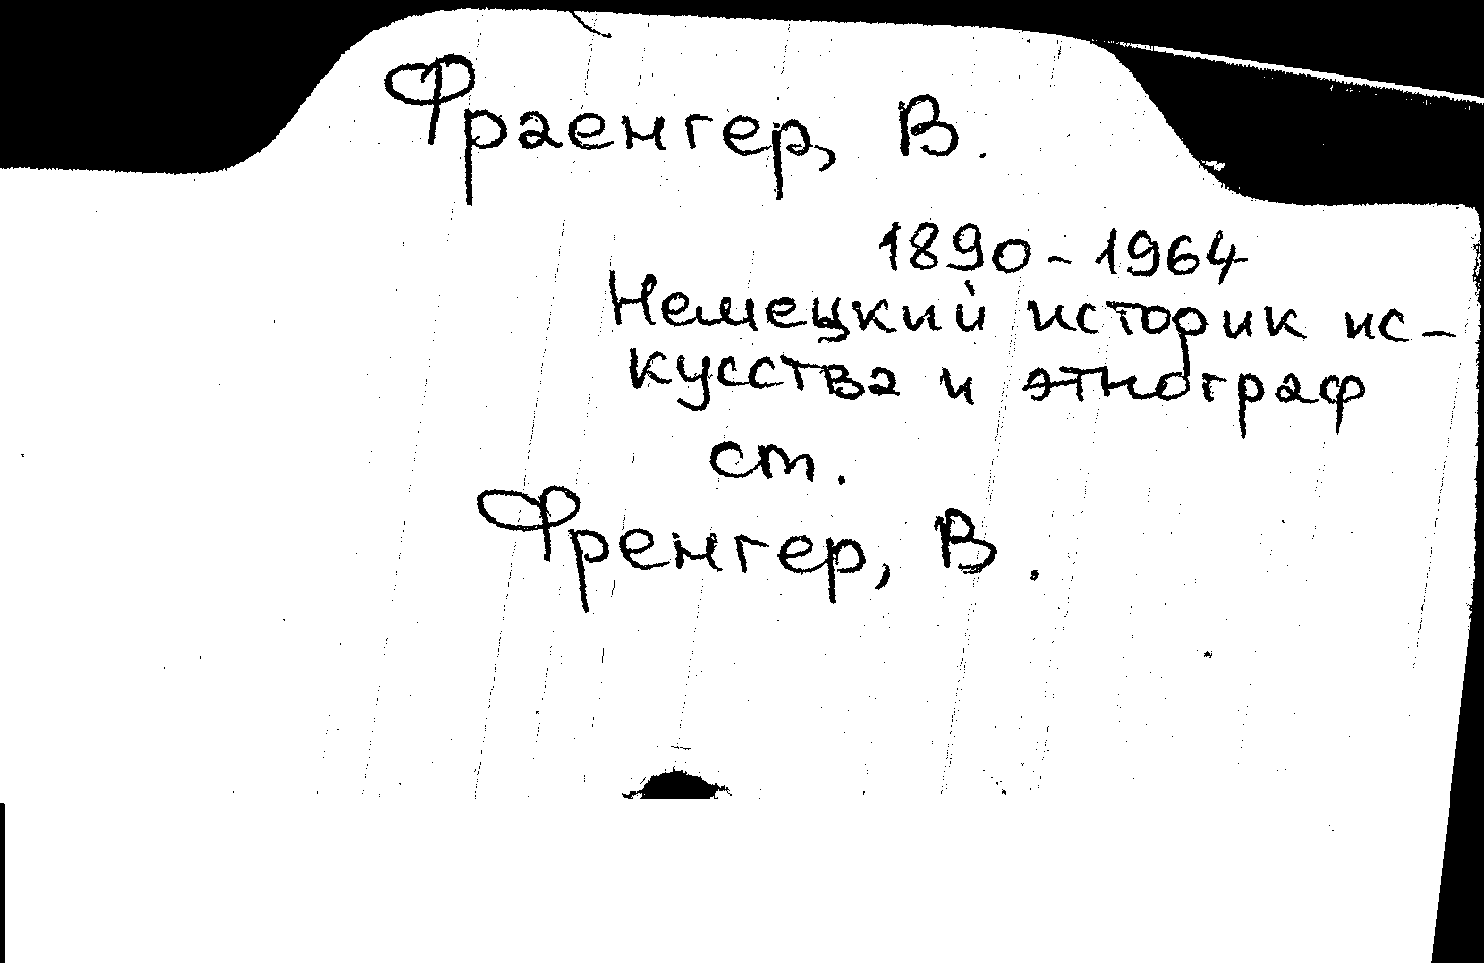 Фраенгер, В.
1890-1964
Немецкий историк ис-
кусства и этнограф
ст.
Френгер, В.